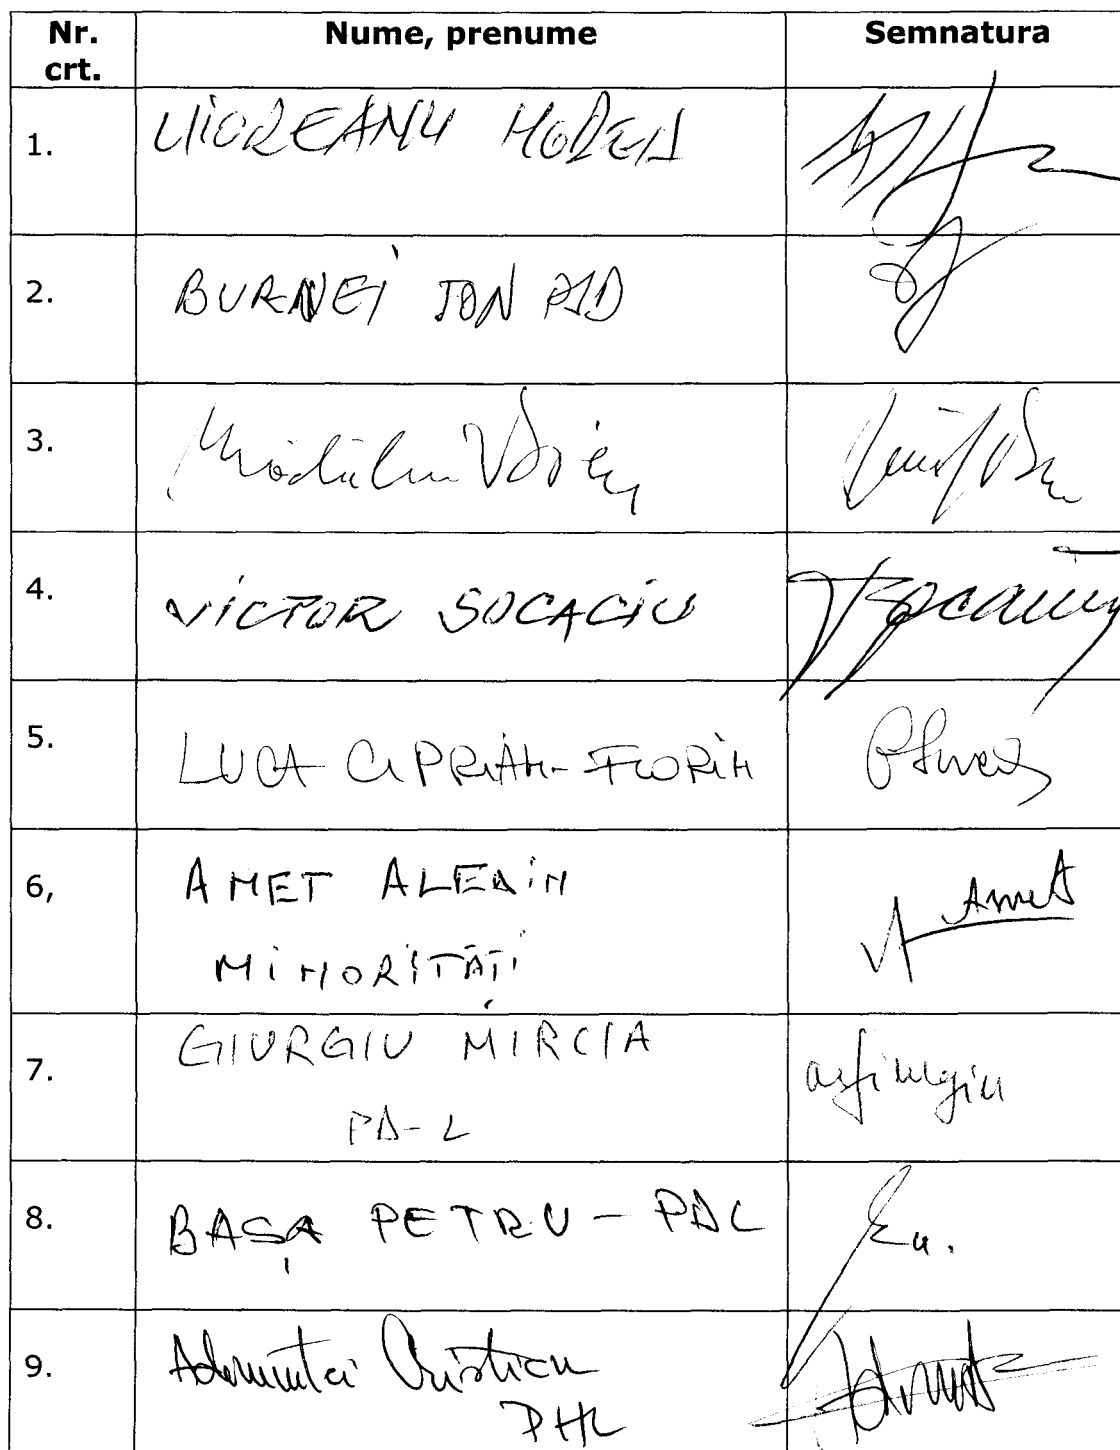 Nr. crt. Nume, prenume Semnatura
1. UIOREANU HOREA
2. BURNEI ION
3. Mădălin Voicu
4. VICTOR SOCACIU
5. LUCA CIPRIAN-FLORIN
6, AMET ALEDIN Amet
MINORITĂȚI
7. GIURGIU MIRCIA
PD-L
8. BAȘA PETRU - PDL
9. Adomniței Cristian
PNL